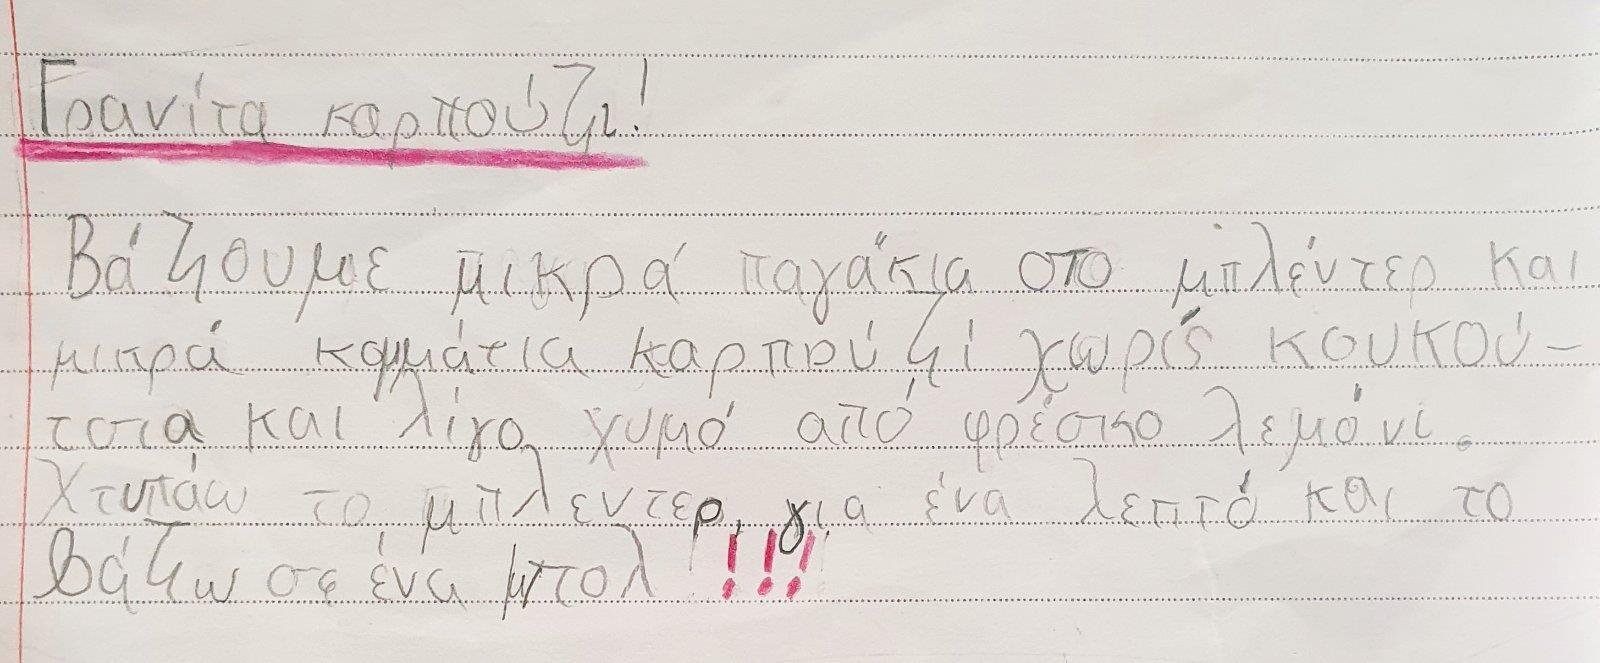 Γρανίτα καρπούζι!
Βάζουμε μικρά παγάκια στο μπλέντερ και
μικρά κομμάτια καρπούζι χωρίς κουκού-
τσια και λίγο χυμό από φρέσκο λεμόνι.
Χτυπάω το μπλεντερ, για ένα λεπτό και το
βάζω σε ένα μπολ !!!